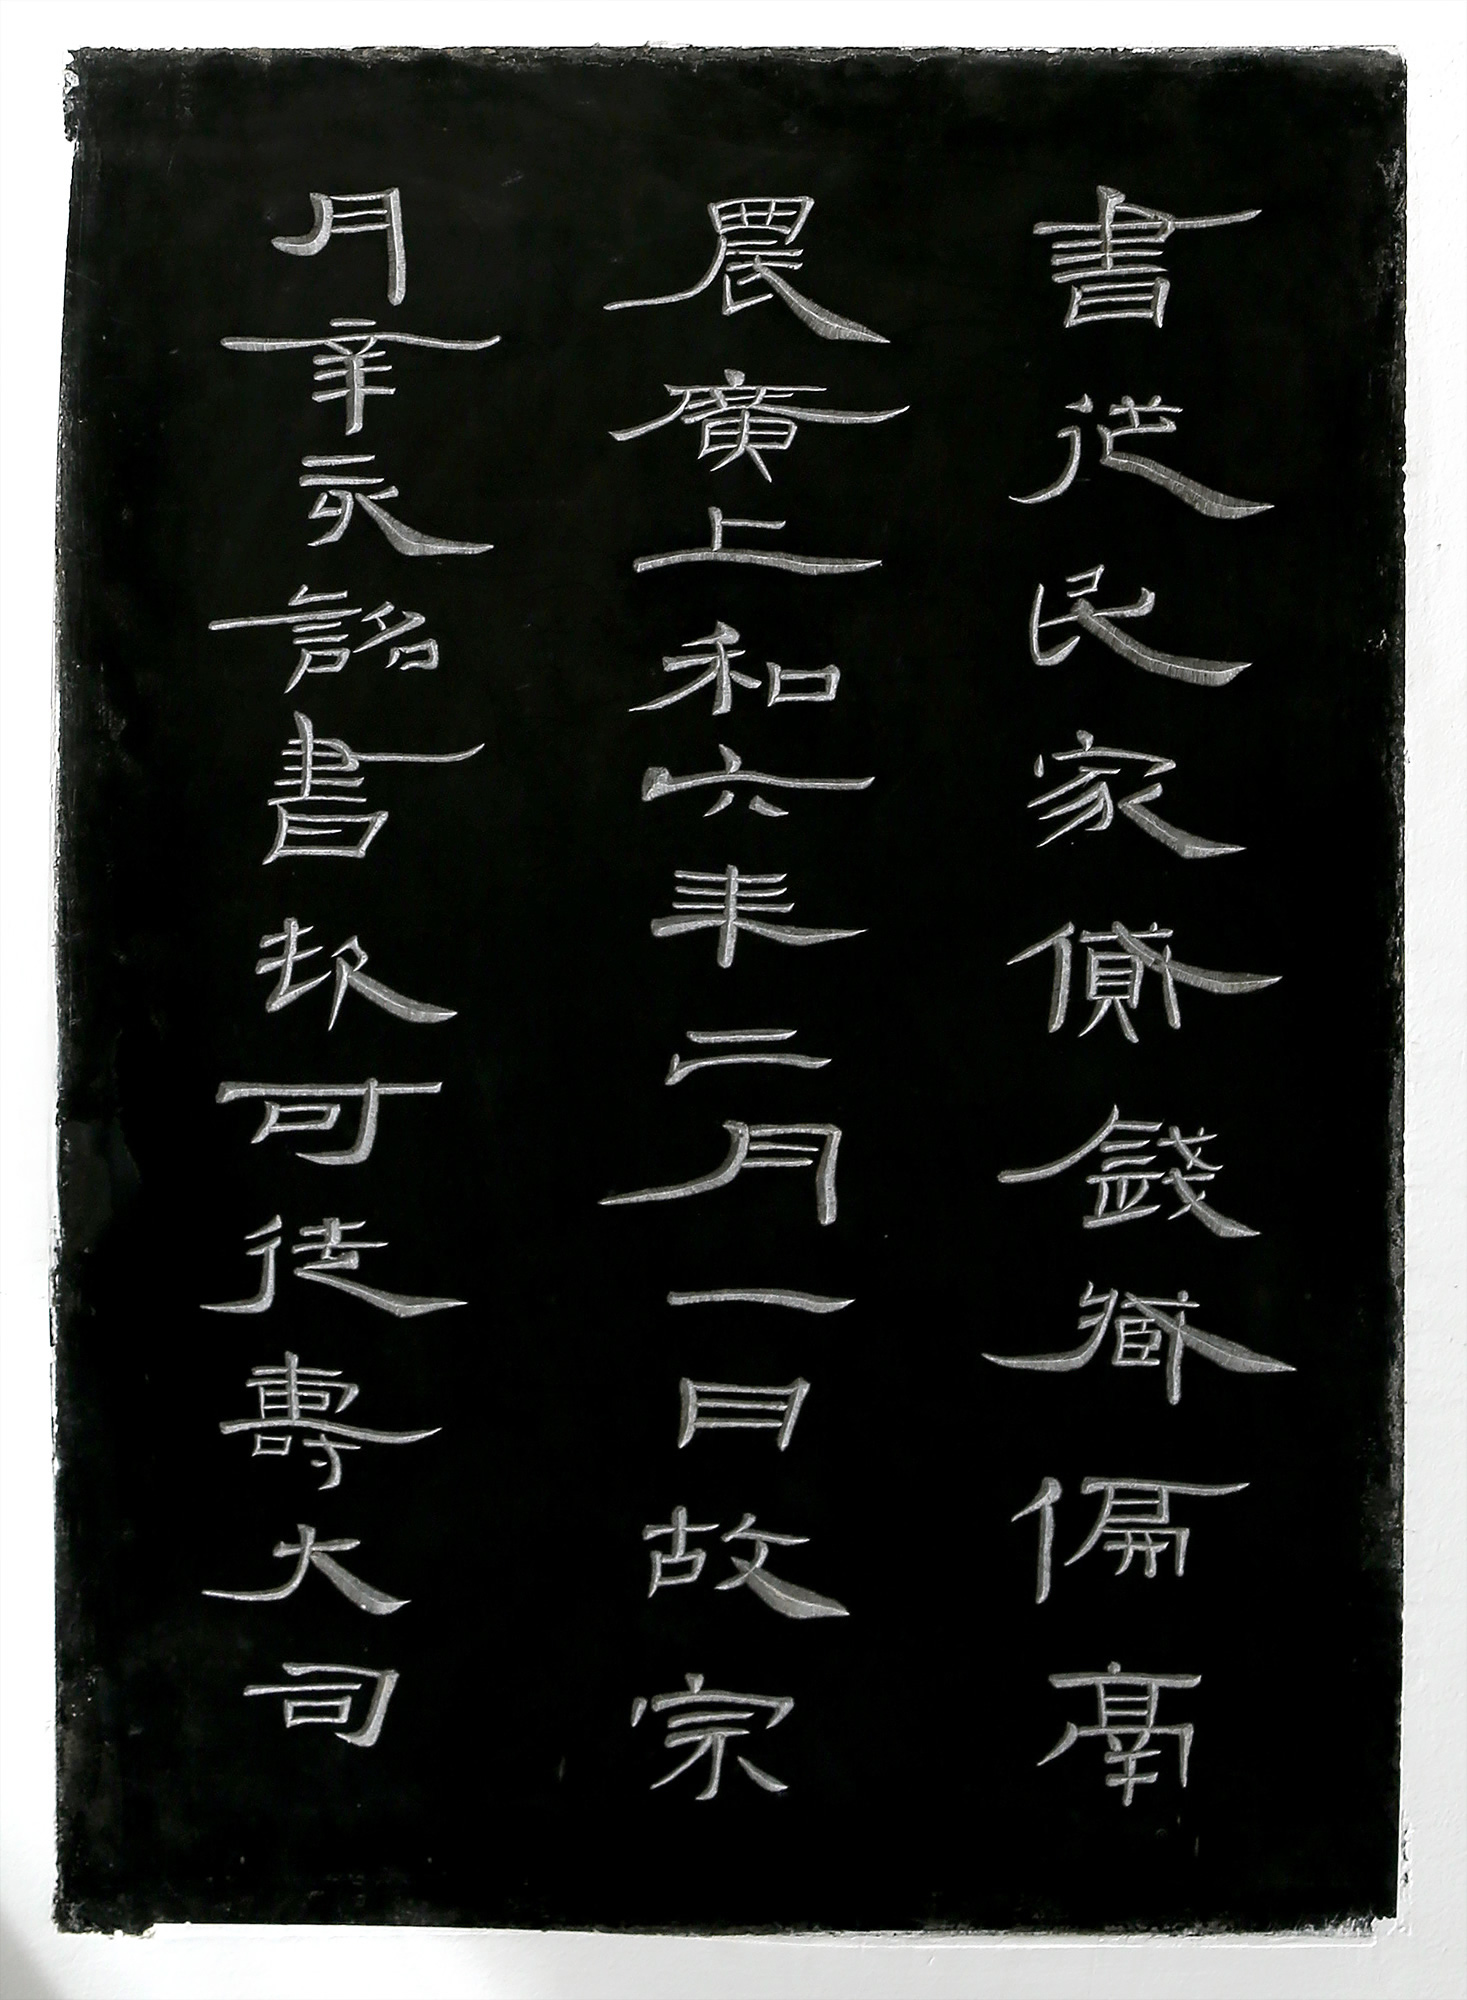 書從民家貸錢臧偏
農廣上和六年二月一日故宗
月辛亥詔書報可徒壽大司